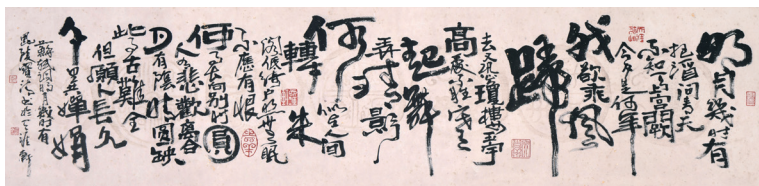 明月幾時有
把酒問青天
不知天上宮闕
今夕是何年
我欲乘風
歸
去又恐瓊樓玉宇
高處不勝寒
起舞
弄清影
何似
在人間
轉朱
閣低綺戶照無眠
不應有恨
何事長向別時圓
人有悲歡離合
月有陰晴圓缺
此事古難全
但願人長久
千里嬋娟
蘇軾詞明月幾時有